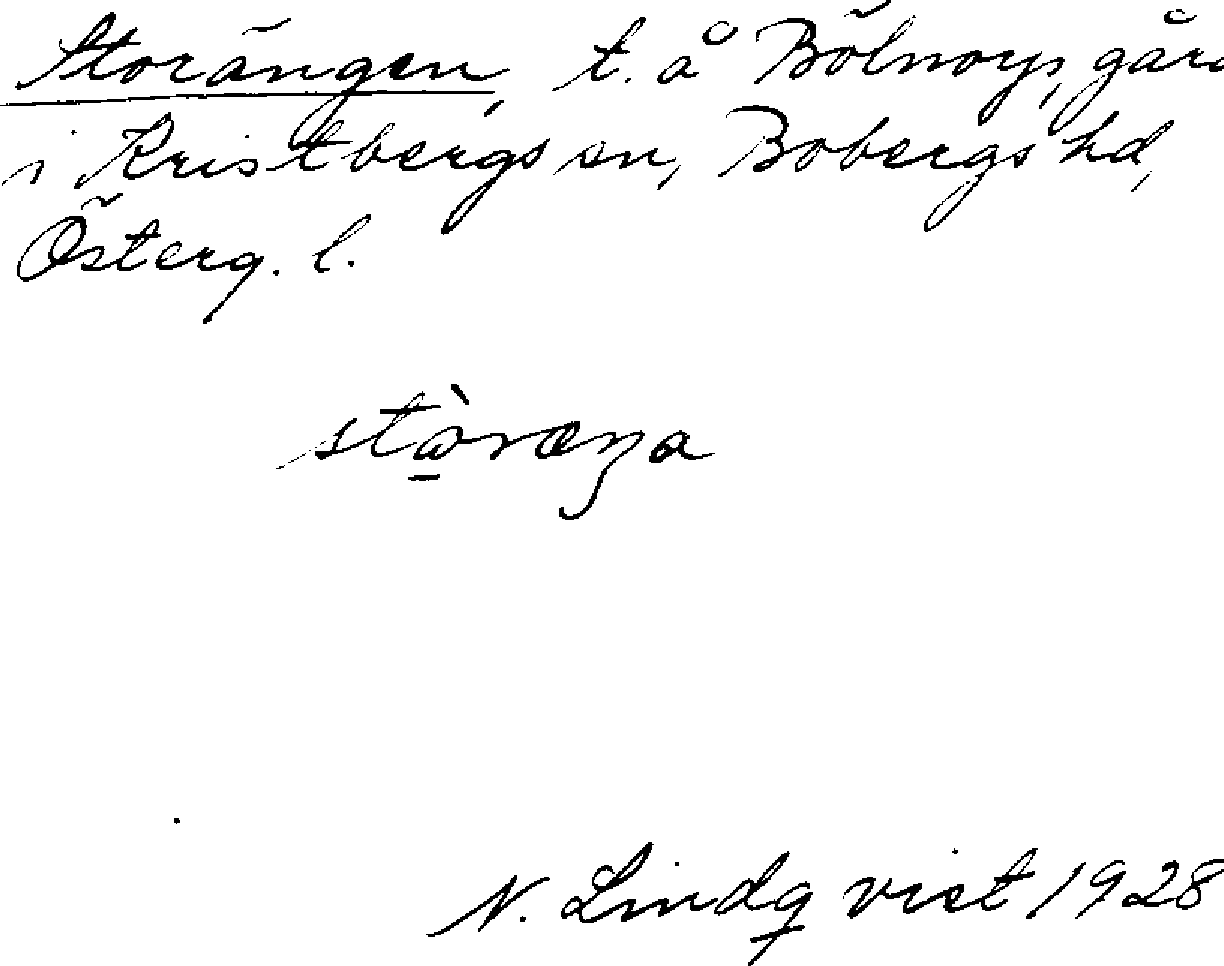 Storängen, t. å Bölnorp, gård
i Kristbergs sn, Bobergs hd,
Österg. l.
stò̱ræŋa
N. Lindqvist 1928